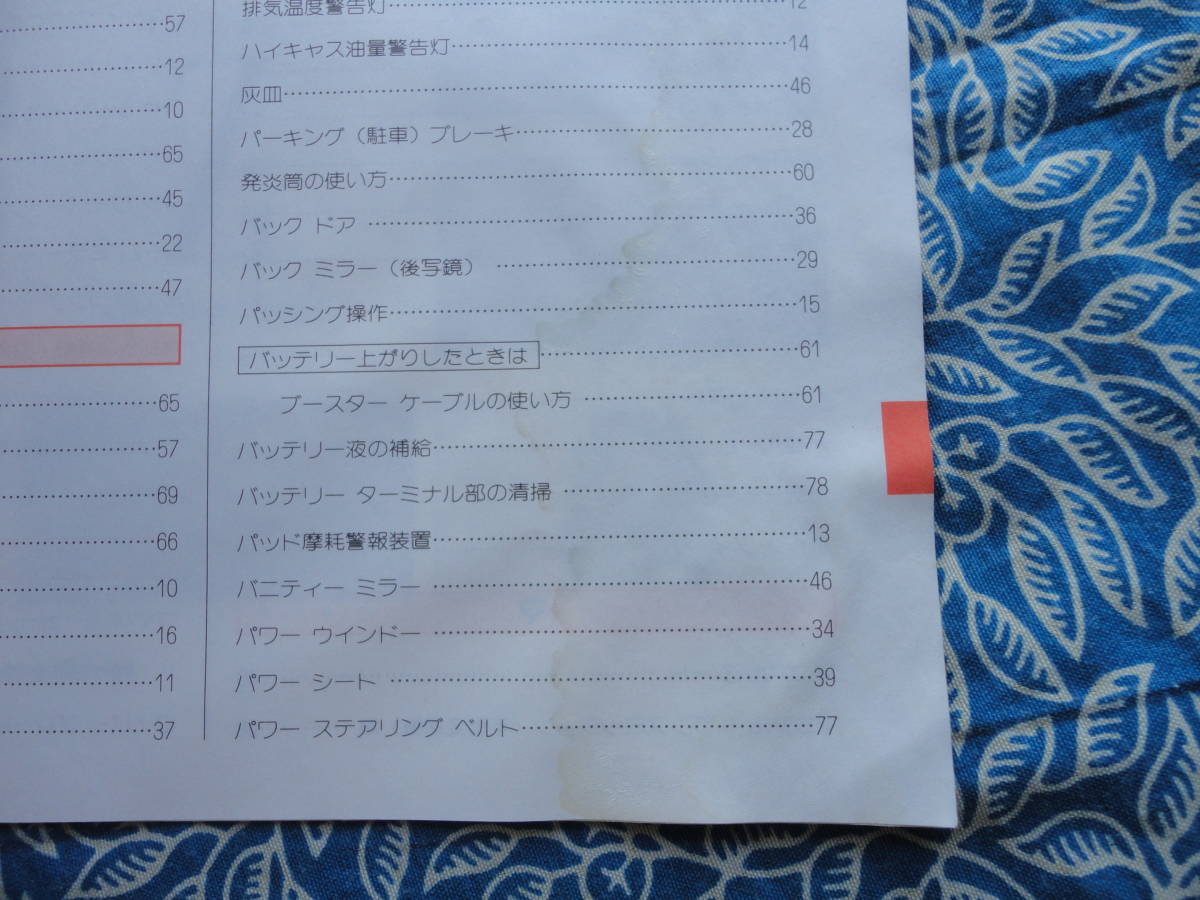 57
12
10
65
45
22
47
65
57
69
66
10
16
11
37
排気温度警告灯……12
ハイキャス油量警告灯……14
灰皿……46
パーキング（駐車）ブレーキ……28
発炎筒の使い方……60
バック ドア ……36
バック ミラー（後写鏡） ……29
パッシング操作……15
バッテリー上がりしたときは……61
ブースター ケーブルの使い方 ……61
バッテリー液の補給……77
バッテリー ターミナル部の清掃 ……78
パッド摩耗警報装置……13
バニティー ミラー ……46
パワー ウインドー ……34
パワー シート ……39
パワー ステアリング ベルト……77